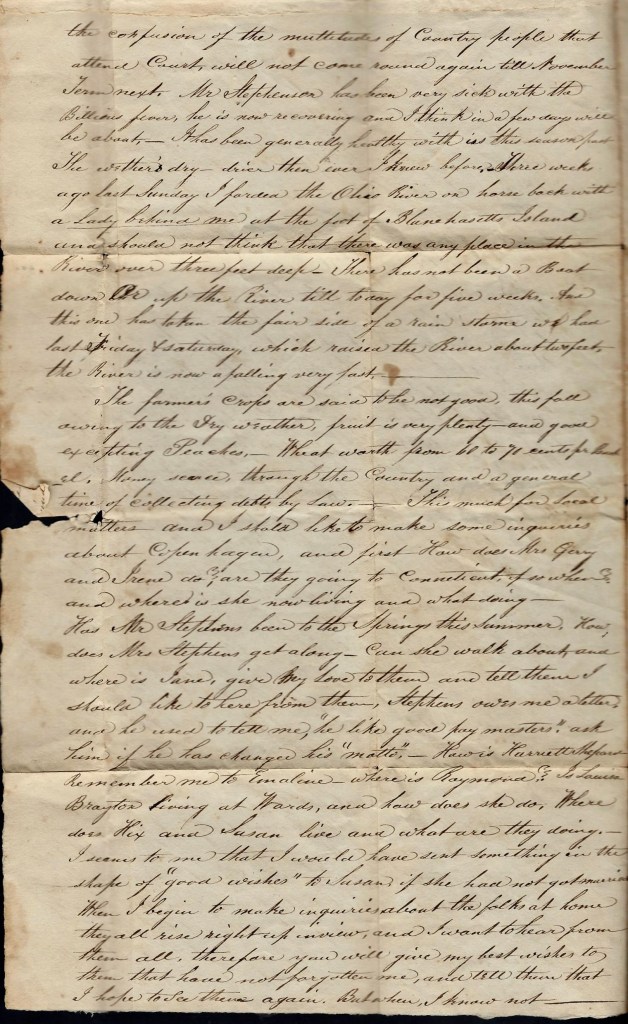 the confusion of the multitudes of Country people that
attend Court, will not come round again till November
Term next. Mr Stephenson has been very sick with the
Billious fever, he is now recovering and I think in a few days will
be about,— It has been generally healthy with us this season past
The wether's dry— drier then ever I knew before, three weeks
ago last Sunday I forded the Ohio River on horse back with
a Lady behind me at the foot of Blanehasetts Island
and should not think that there was any place in the
River over three feet deep— There has not been a Boat
down Or up the River till today for five weeks. And
this one has taken the fair side of a rain storm we had
last Friday & saturday, which raised the River about two feet,
the River is now a falling very fast.—
The farmer's crops are said to be not good, this fall
owing to the Dry weather, fruit is very plenty— and good
excepting Peaches,— Wheat worth from 60 to 70 cents per Bush
el. Money scarce, through the Country and a general
time of collecting debts by Law.— This much for Local
matters— and I shold like to make some inquiries
about Copenhagen, and first How does Mrs Gerry
and Irene do? are they going to Conneticut, if so when?
and where is she now living and what doing—
Has Mr Stephens been to the Springs this summer. How,
does Mrs Stephens get along— Can she walk about, and
where is Jane, give my love to them and tell them I
should like to here from them, Stephens owes me a letter,
and he used to tell me, "he like good pay masters". ask
him if he has changed his "motto",— How is Harriett
Remember me to Emaline— where is Raymond? Is Louisa
Brayton living at Wards, and how does she do, Where
does Hix and Susan live and what are they doing.—
I seems to me that I would have sent something in the
shape of "good wishes" to Susan, if she had not got married
When I begin to make inquiries about the folks at home
they all rise right up in view, and I want to hear from
them all, therefore you will give my best wishes to
them that have not forgotten me, and tell them that
I hope to See them again. But when, I know not—